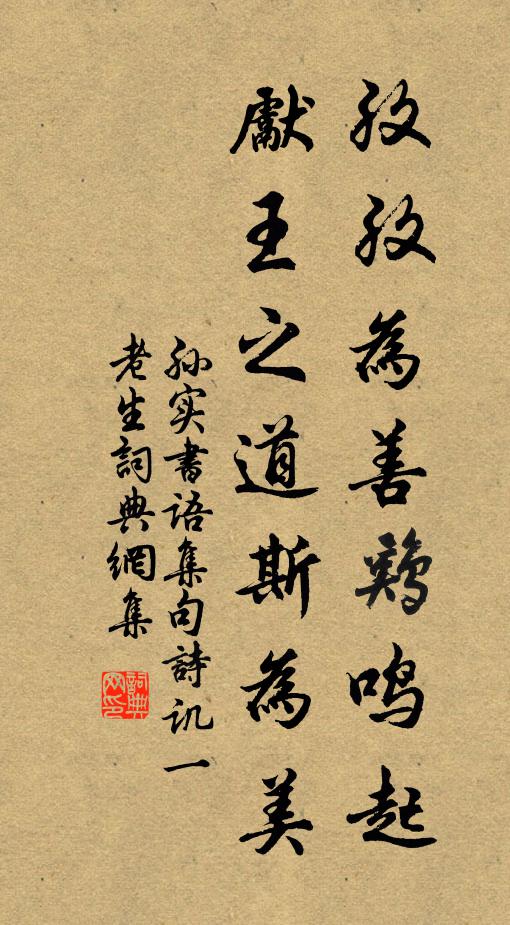 孜孜為善鷄鳴起
獻王之道斯為美
孙实書语集句詩讥一
老生詞典網集
詞典网印